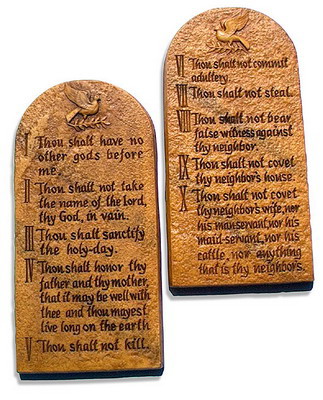 I Thou shalt have no
other gods before
me.
II Thou shalt not take
the name of the lord,
thy God, in vain.
III Thou shalt sanctify
the holy-day.
IV Thou shalt honor thy
father and thy mother,
that it may be well with
thee and thou mayest
live long on the earth
V Thou shalt not kill.
VI Thou shalt not commit
adultery.
VII Thou shalt not steal.
VIII Thou shalt not bear
false witness against
thy neighbor.
IX Thou shalt not covet
thy neighbors house.
X Thou shalt not covet
thy neighbors wife, nor
his manservant, nor his
maid-servant, nor his
cattle, nor anything
that is thy neighbors.